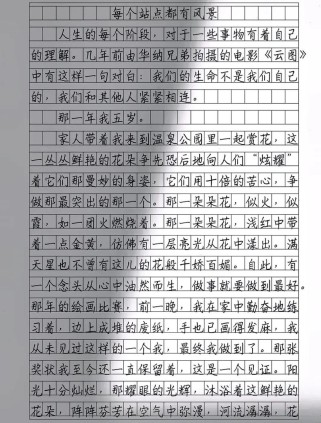 每个站点都有风景
人生的每个阶段，对于一些事物有着自己
的理解。几年前由华纳兄弟拍摄的电影《云图》
中有这样一句对白：我们的生命不是我们自己
的，我们和其他人紧紧相连。
那一年我五岁。
家人带着我来到温泉公园里一起赏花，这
一丛丛鲜艳的花朵争先恐后地向人们“炫耀”
着它们那曼妙的身姿，它们用十倍的苦心，争
做那最突出的那一个。那一朵朵花，似火，似
霞，如一团火燃烧着。那一朵朵花，浅红中带
着一点金黄，仿佛有一层亮光从花中漾出。满
天星也不曾有这儿的花般千娇百媚。自此，有
一个念头从心中油然而生，做事就要做到最好。
那年的绘画比赛，前一晚，我在家中勤奋地练
习着，边上成堆的废纸，手也已画得发麻，我
从未见过这样的一个我，最终我做到了。那张
奖状我至今还一直保留着，这是一个见证。阳
光十分灿烂，那耀眼的光辉，沐浴着这鲜艳的
花朵，阵阵芬芳在空气中弥漫，河流潺潺，花